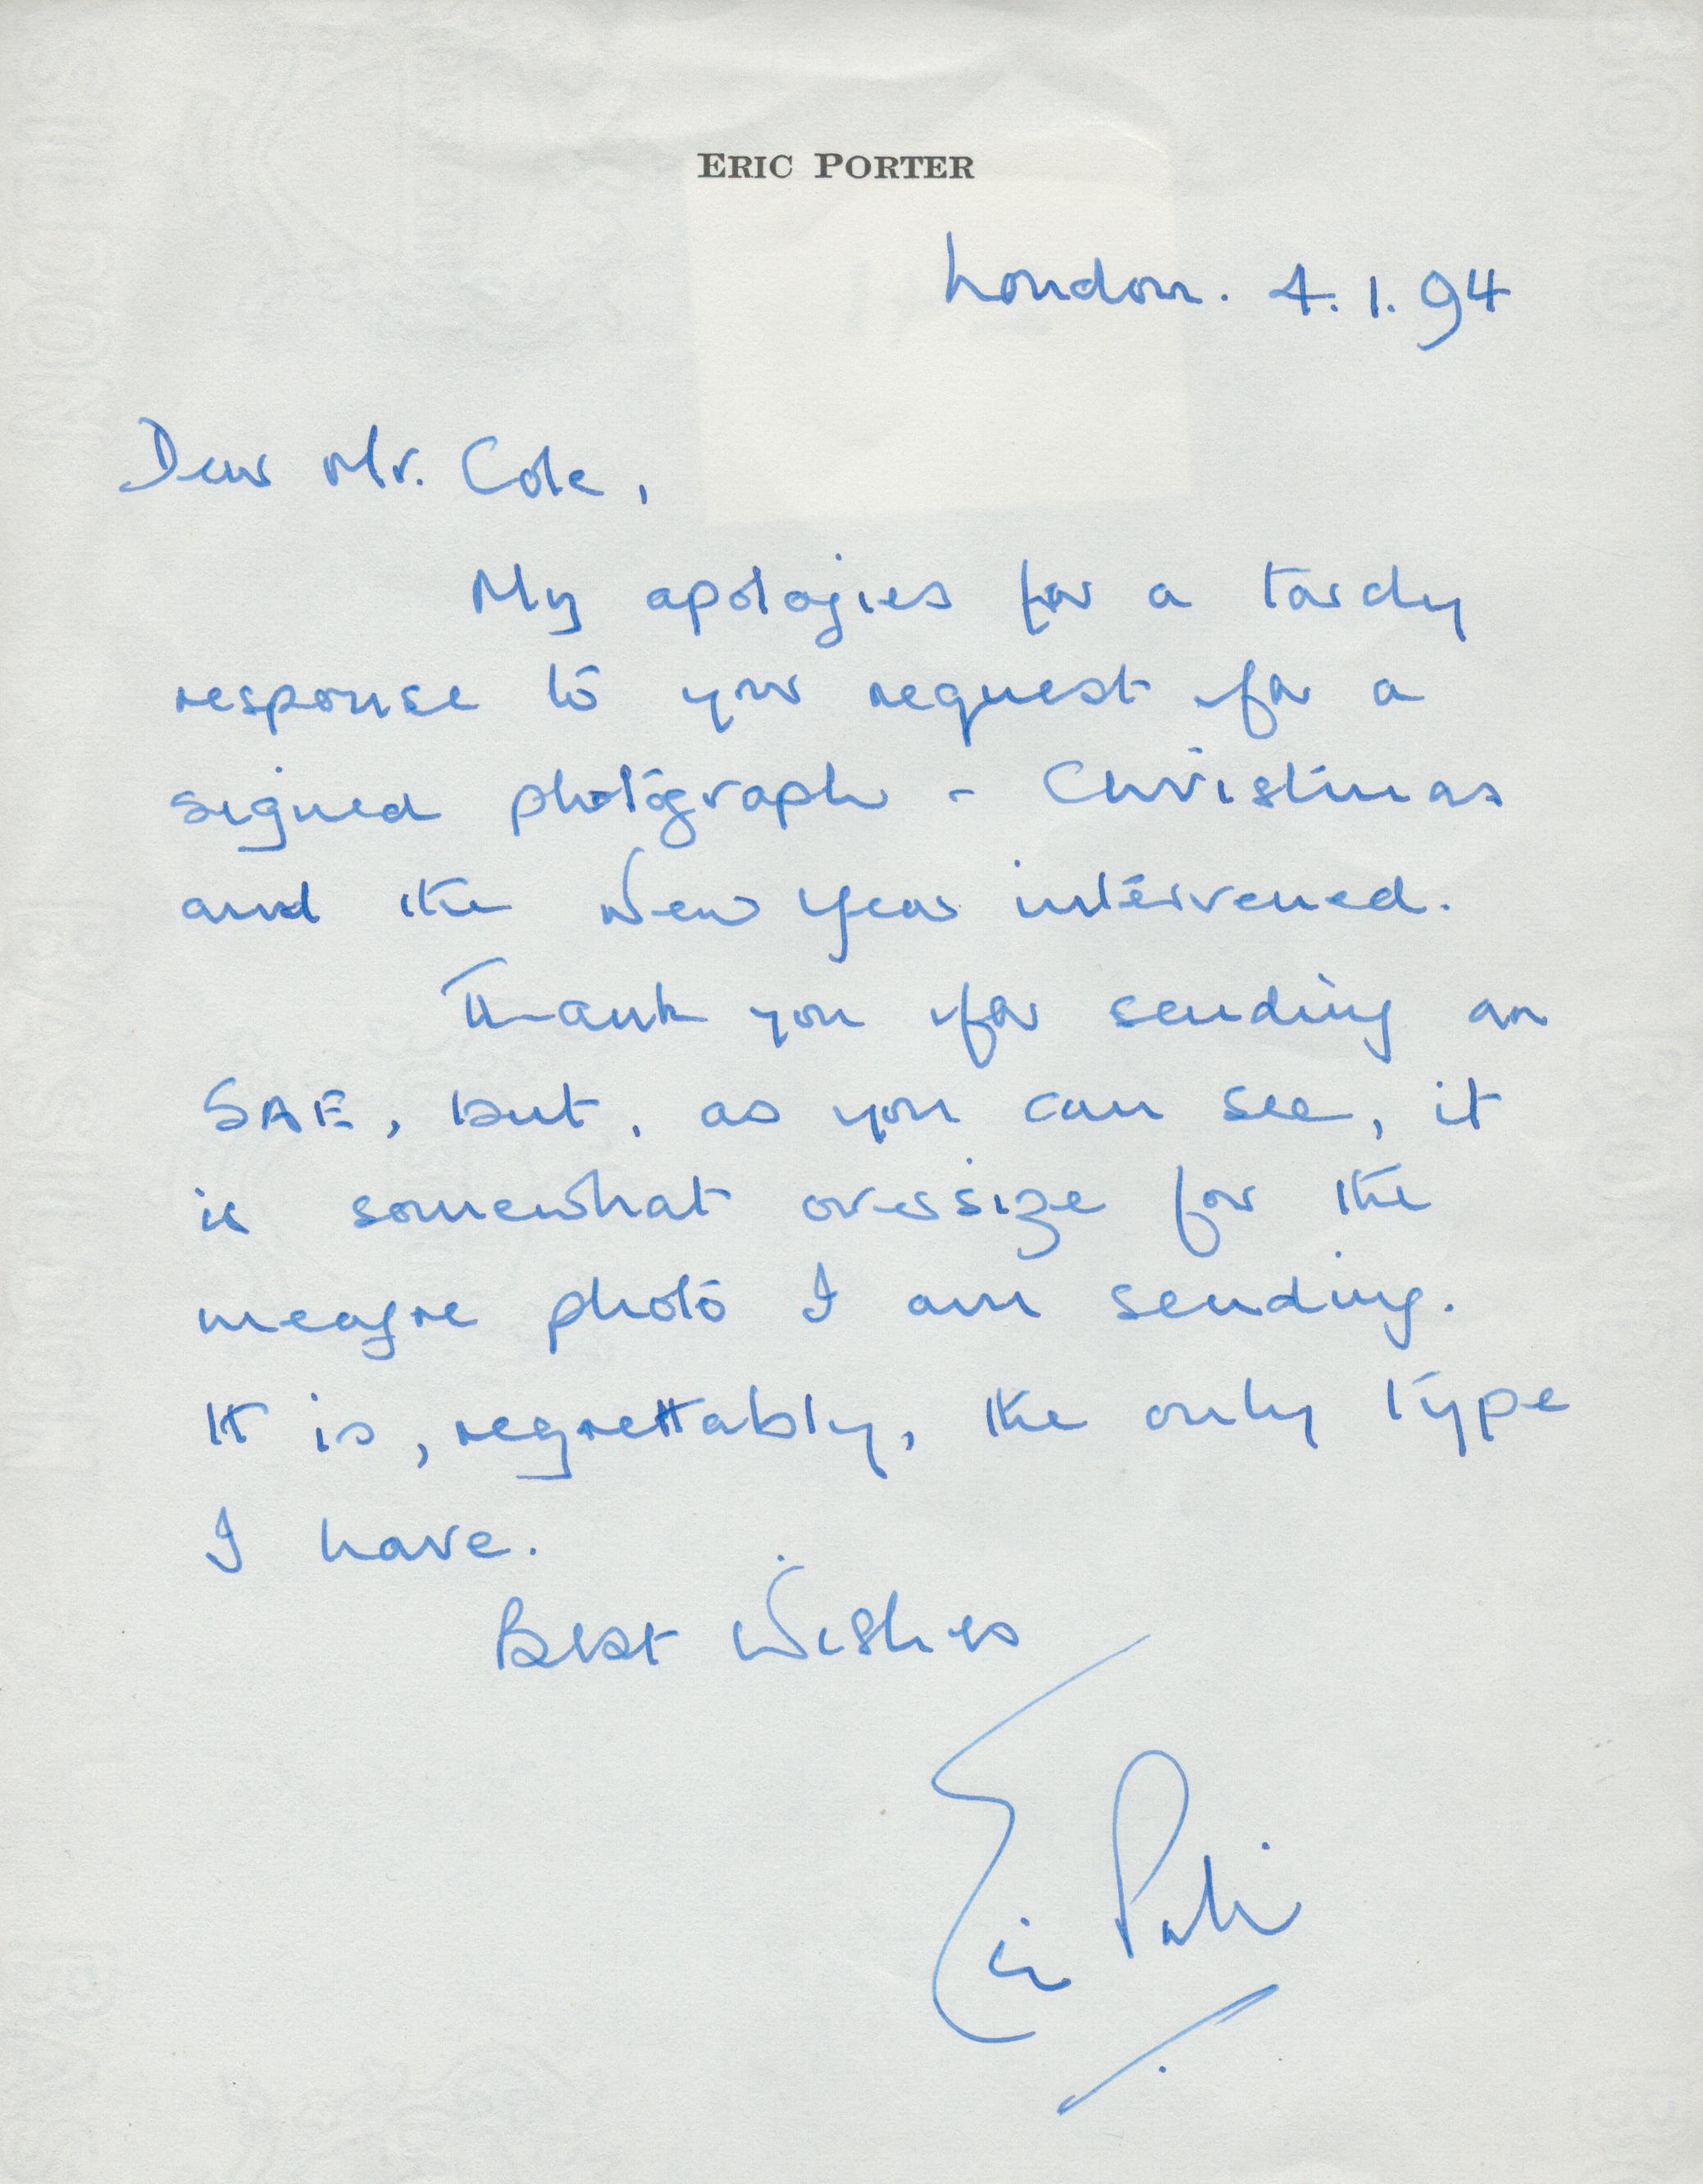 ERIC PORTER
London. 4.1.94
Dear Mr. Cole,
My apologies for a tardy
response to your request for a
signed photograph - Christmas
and the New Year intervened.
Thank you for sending an
SAE, but, as you can see, it
is somewhat oversize for the
meagre photo I am sending.
It is, regrettably, the only type
I have.
Best Wishes
Eric Porter